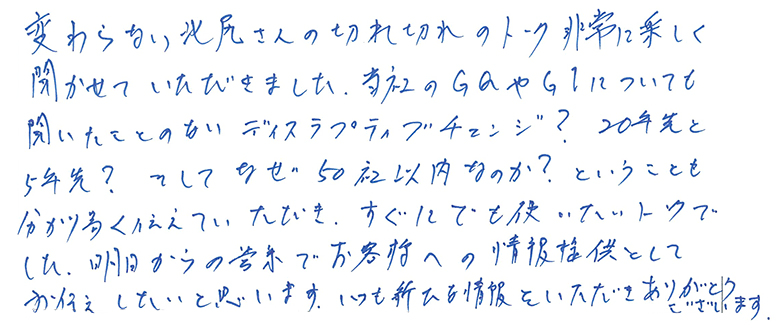 変わらない池尻さんの切れ切れのトーク非常に楽しく
聞かせていただきました。当社のGAやGIについても
聞いたことのないディスラプティブチェンジ? 20年先と
5年先? そしてなぜ50社以内なのか? ということも
分かり易く伝えていただき、すぐにでも使いたいトークで
した。明日からの営業でお客様への情報提供として
お伝えしたいと思います。いつも新たな情報をいただきありがとうございます。